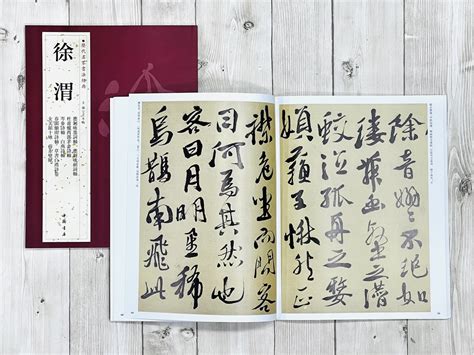 歷代名家書法珍品
徐渭
中國書店
餘音嫋嫋不絕如
縷舞幽壑之潛
蛟泣孤舟之嫠
婦蘇子愀然正
襟危坐而問客
曰何為其然也
客曰月明星稀
烏鵲南飛此